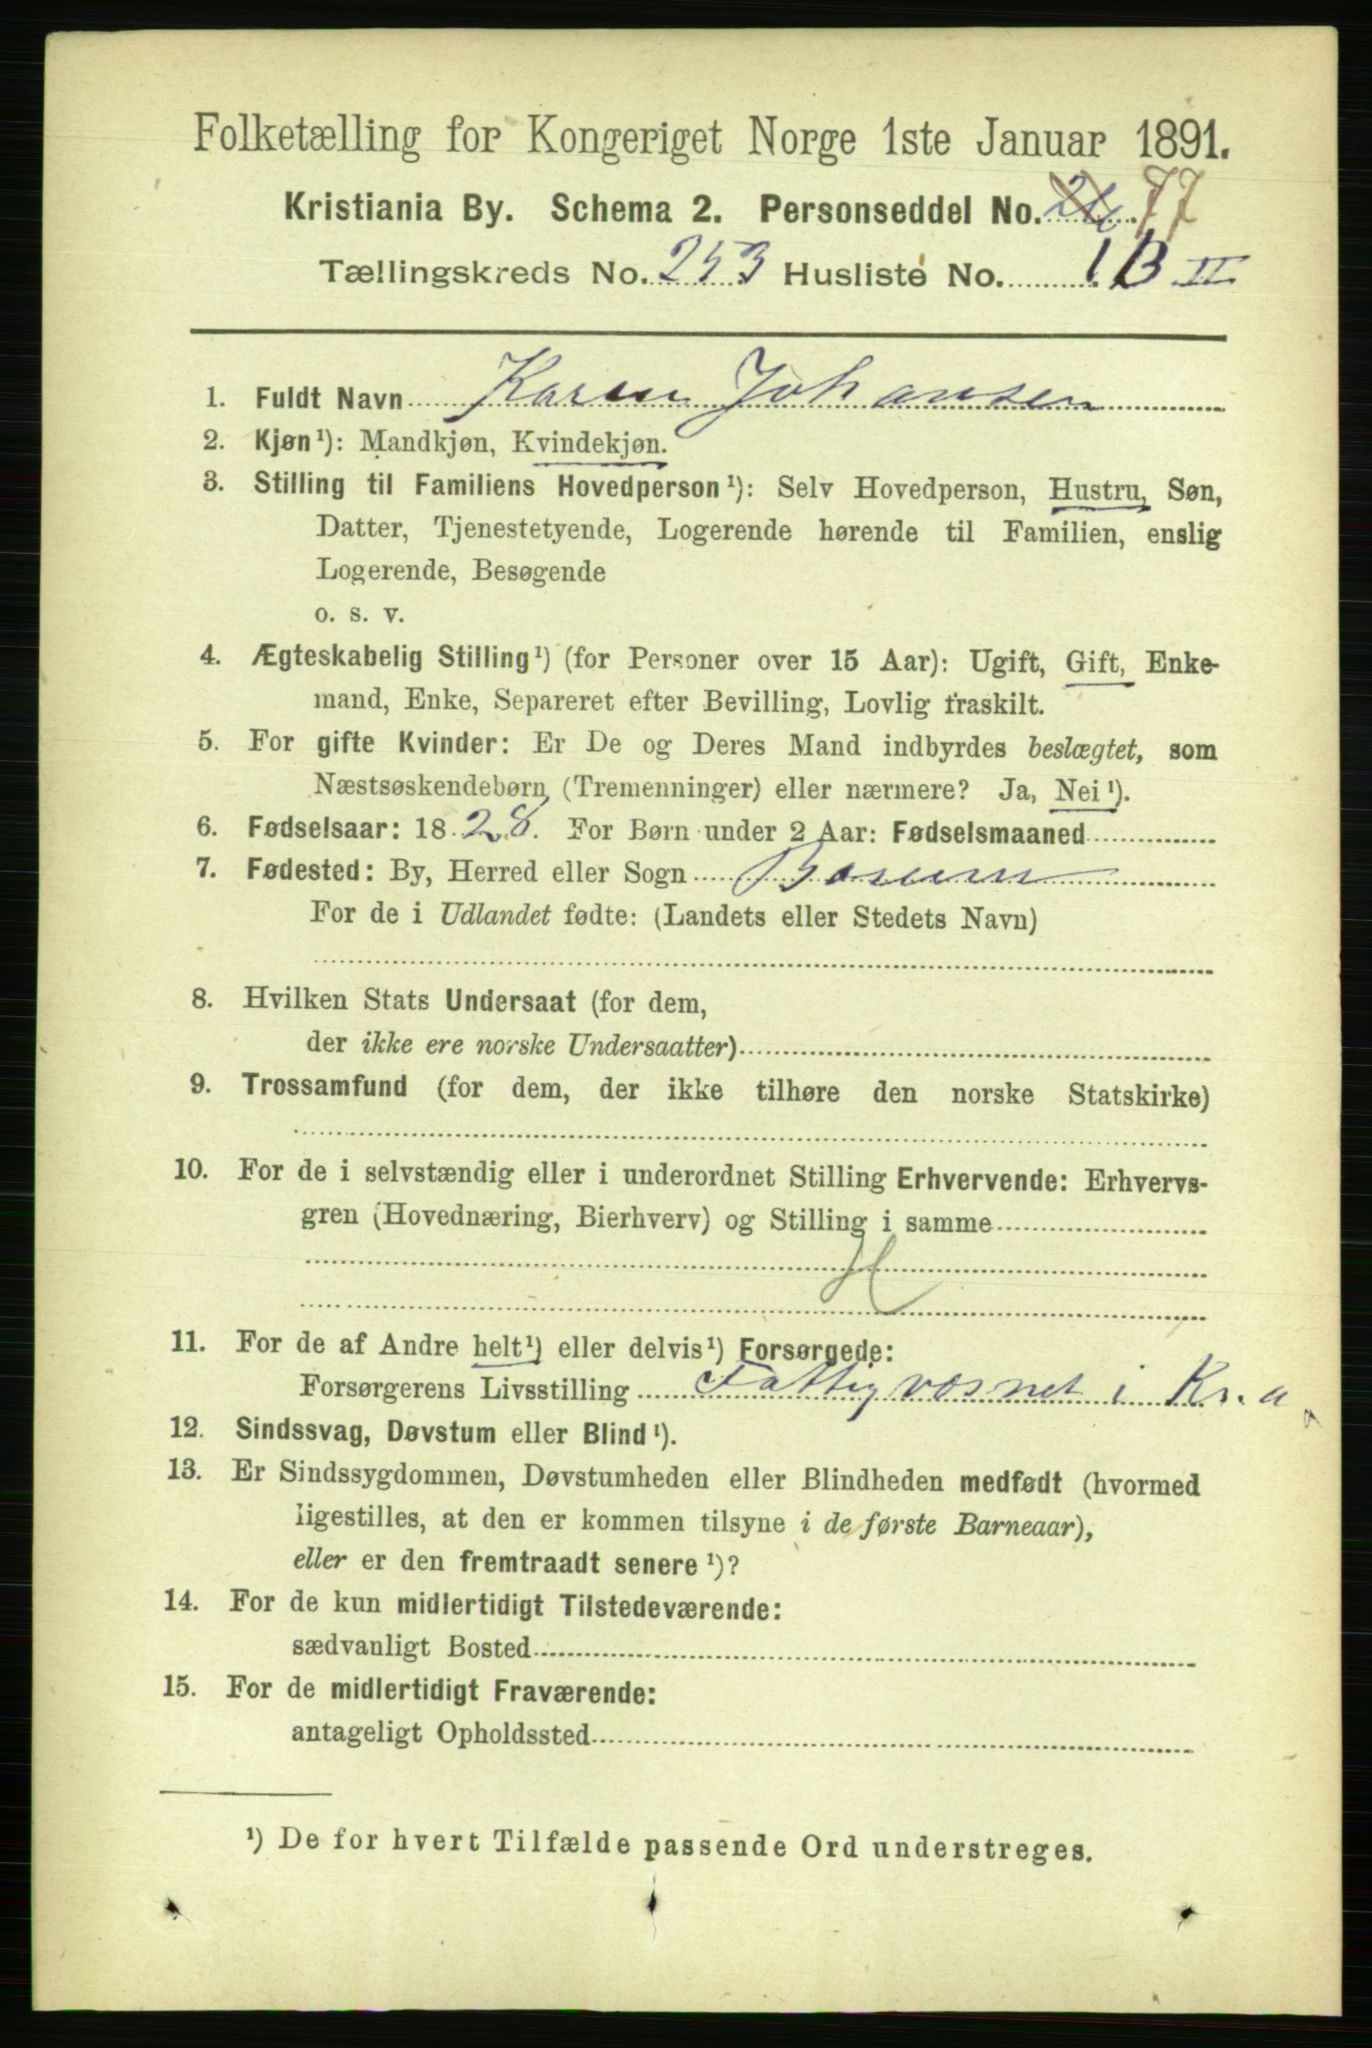 Folketælling for Kongeriget Norge 1ste Januar 1891.
Kristiania By. Schema 2. Personseddel No. 77
Tællingskreds No. 253 Husliste No. 1 B II
1. Fuldt Navn Karen Johansen
2. Kjøn¹): Mandkjøn, Kvindekjøn.
3. Stilling til Familiens Hovedperson¹): Selv Hovedperson, Hustru, Søn,
Datter, Tjenestetyende, Logerende hørende til Familien, enslig
Logerende, Besøgende
o. s. v.
4. Ægteskabelig Stilling¹) (for Personer over 15 Aar): Ugift, Gift, Enke-
mand, Enke, Separeret efter Bevilling, Lovlig fraskilt.
5. For gifte Kvinder: Er De og Deres Mand indbyrdes beslægtet, som
Næstsøskendebørn (Tremenninger) eller nærmere? Ja, Nei¹).
6. Fødselsaar: 1828. For Børn under 2 Aar: Fødselsmaaned
7. Fødested: By, Herred eller Sogn Bærum
For de i Udlandet fødte: (Landets eller Stedets Navn)
8. Hvilken Stats Undersaat (for dem,
der ikke ere norske Undersaatter)
9. Trossamfund (for dem, der ikke tilhøre den norske Statskirke)
10. For de i selvstændig eller i underordnet Stilling Erhvervende: Erhvervs-
gren (Hovednæring, Bierhverv) og Stilling i samme
H
11. For de af Andre helt¹) eller delvis¹) Forsørgede:
Forsørgerens Livsstilling Fattigvæsnet i Kr.a
12. Sindssvag, Døvstum eller Blind¹).
13. Er Sindssygdommen, Døvstumheden eller Blindheden medfødt (hvormed
ligestilles, at den er kommen tilsyne i de første Barneaar),
eller er den fremtraadt senere¹)?
14. For de kun midlertidigt Tilstedeværende:
sædvanligt Bosted
15. For de midlertidigt Fraværende:
antageligt Opholdssted
¹) De for hvert Tilfælde passende Ord understreges.